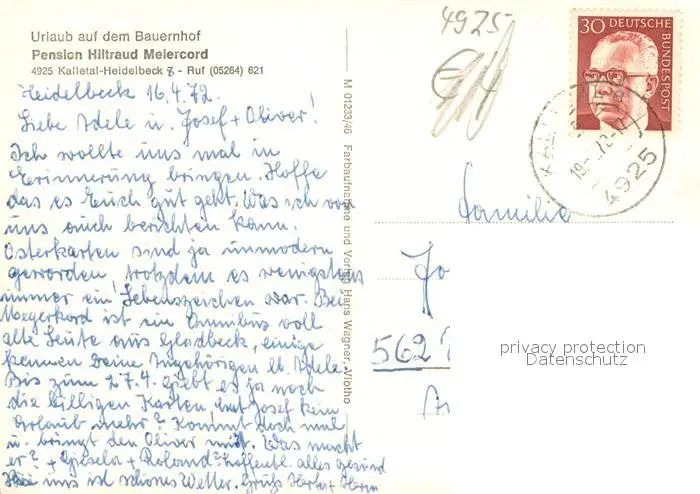 Urlaub auf dem Bauernhof
Pension Hiltraud Meiercord
4925 Kalletal-Heidelbeck 8 - Ruf (05264) 621
Heidelbeck 16.4.72.
Liebe Adele u. Josef + Oliver!
Ich wollte uns mal in
Erinnerung bringen. Hoffe
das es Euch gut geht. Was ich von
uns auch berichten kann.
Osterkarten sind ja unmodern
geworden, trotzdem es wenigstens
immer ein Lebenszeichen war. Bei
Meyerkord ist ein Omnibus voll
alte Leute aus Gladbeck, einige
kennen Deine Angehörigen lb. Adele.
Bis zum 27.4. giebt es ja noch
die billigen Karten, hat Josef kein
Urlaub mehr? Kommt doch mal
u. bringt den Oliver mit. Was macht
er? + Gisela + Roland? hoffentl. alles gesund
Bei uns ist schönes Wetter. Grüße Herta + Herm
M 01233/46 Farbaufnahme und Verlag Hans Wagner, Vlotho
4925
30 DEUTSCHE BUNDESPOST
KALL
19. 72-17
4925
Familie
Jo
562
privacy protection
Datenschutz